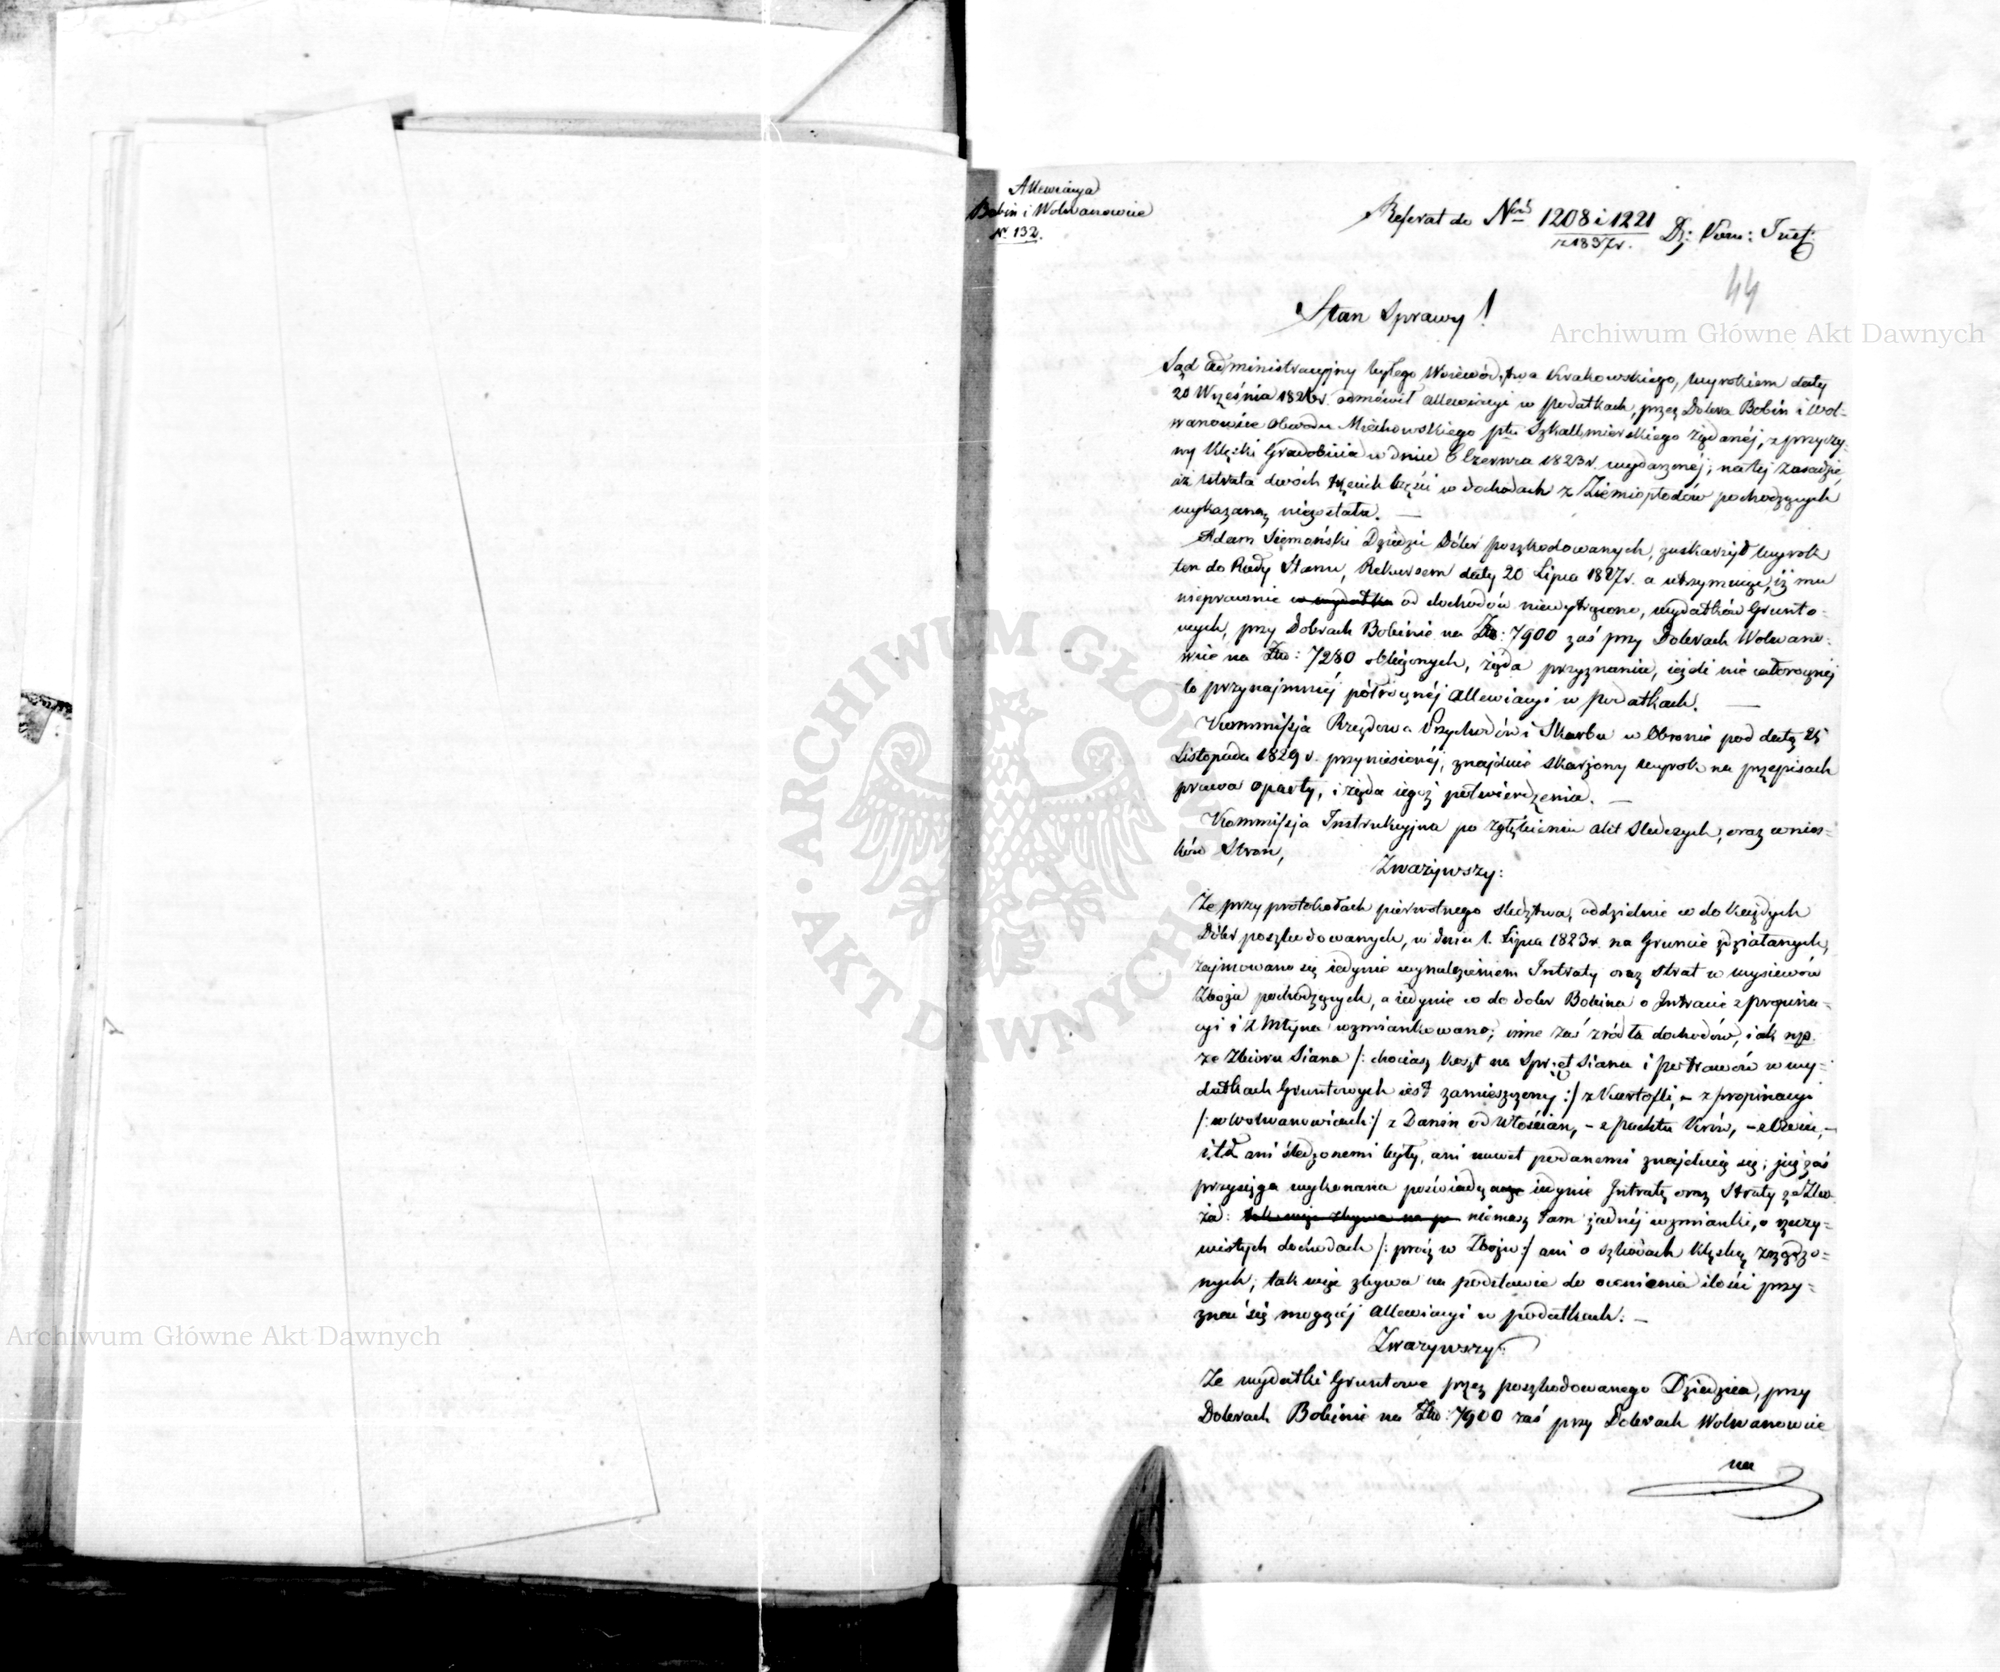 Allewiacya
Bobin i Wolwanowice
Nr. 132.
Referat do Nrów 1208 i 1221 Dz: Kom: Inst:
z 1837 r.
44
Stan Sprawy!
Archiwum Główne Akt Dawnych
Sąd Administracyjny byłego Województwa Krakowskiego, wyrokiem daty
20 Września 1826 r. odmówił allewiacyi w podatkach, przez Dobra Bobin i Wol-
wanowice Obwodu Miechowskiego ptu Szkalbmierskiego żądanéj, z przyczy-
ny klęski Gradobicia w dniu 6 Czerwca 1823 r. wydarzonéj; na téj zasadzie
iż utrata dwóch trzecich części w dochodach z Ziemiopłodów pochodzących
wykazaną niezostała. —
Adam Siemoński Dziedzic Dóbr poszkodowanych, zaskarżył wyrok
ten do Rady Stanu, Rekursem daty 20 Lipca 1827 r. a utrzymując, iż mu
nieprawnie w wydatku od dochodów niewytrącono, wydatków Grunto-
wych, przy Dobrach Bobinie na Złp: 7900 zaś przy Dobrach Wolwano-
wice na Złp: 7280 obliczonych, żąda przyznania, ieżeli nie całorocznéj
to przynajmniéj półrocznéj allewiacyi w podatkach. —
Kommissja Rządowa Przychodów i Skarbu w Obronie pod datą 25
Listopada 1829 r. przyniesionéj, znajduie skarżony wyrok na przepisach
prawa oparty, i żąda iegoż potwierdzenia. —
Kommissja Instrukcyjna po zgłębieniu akt śledczych, oraz wnios-
ków Stron,
Zważywszy:
Że przy protokołach pierwotnego śledztwa, oddzielnie co do każdych
Dóbr poszkodowanych, w dniu 1. Lipca 1823 r. na Gruncie zdziałanych,
zajmowano się iedynie wynalezieniem Intraty oraz strat w wysiewów
Zboża pochodzących, a iedynie co do dóbr Bobina o Intracie z propina-
cyi i z Młyna wzmiankowano; inne zaś źródła dochodów, iak np.
ze Zbioru Siana /: chociaż koszt na Sprzęt Siana i potrawów w wy-
datkach Gruntowych iest zamieszczony :/ z Kartofli, – z propinacyi
/: w Wolwanowicach :/ z Danin od Włościan, – z pachtu Krów, – z Owiec, –
i.t.d. ani śledzonemi były, ani nawet podanemi znajduią się; już zaś
przysięga wykonana poświadcza iedynie Intratę oraz Straty ze Zbo-
ża: tak więc zbywa na po niemasz tam żadnéj wzmianki, o rzeczy-
wistych dochodach /: prócz w Zbożu :/ ani o szkodach klęską zrządzo-
nych; tak więc zbywa na podstawie do ocenienia ilości przy-
znać się mogącéj allewiacyi w podatkach. —
Zważywszy:
Że wydatki Gruntowe przez poszkodowanego Dziedzica, przy
Dobrach Bobinie na Złp: 7900 zaś przy Dobrach Wolwanowice
na
ARCHIWUM GŁÓWNE AKT DAWNYCH
Archiwum Główne Akt Dawnych